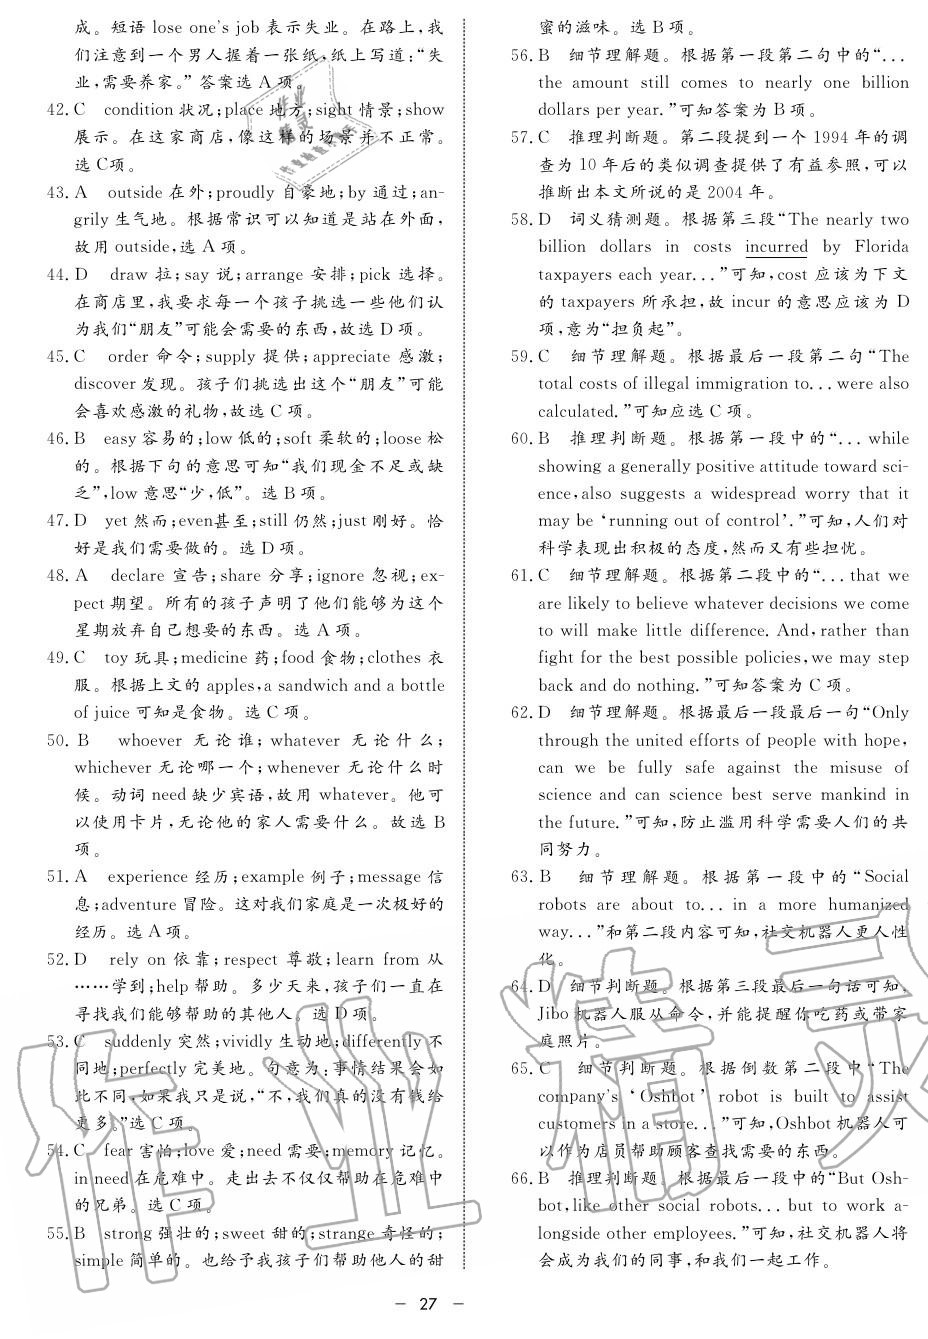 成。短语 lose one's job 表示失业。在路上,我
们注意到一个男人握着一张纸,纸上写道:“失
业,需要养家。”答案选 A 项。
42. C condition 状况;place 地方;sight 情景;show
展示。在这家商店,像这样的场景并不正常。
选 C 项。
43. A outside 在外;proudly 自豪地;by 通过;an-
grily 生气地。根据常识可以知道是站在外面,
故用 outside,选 A 项。
44. D draw 拉;say 说;arrange 安排;pick 选择。
在商店里,我要求每一个孩子挑选一些他们认
为我们“朋友”可能会需要的东西,故选 D 项。
45. C order 命令;supply 提供;appreciate 感激;
discover 发现。孩子们挑选出这个“朋友”可能
会喜欢感激的礼物,故选 C 项。
46. B easy 容易的;low 低的;soft 柔软的;loose 松
的。根据下句的意思可知“我们现金不足或缺
乏”,low 意思“少,低”。选 B 项。
47. D yet 然而;even甚至;still 仍然;just 刚好。恰
好是我们需要做的。选 D 项。
48. A declare 宣告;share 分享;ignore 忽视;ex-
pect 期望。所有的孩子声明了他们能够为这个
星期放弃自己想要的东西。选 A 项。
49. C toy 玩具;medicine 药;food 食物;clothes 衣
服。根据上文的 apples,a sandwich and a bottle
of juice 可知是食物。选 C 项。
50. B whoever 无论谁;whatever 无论什么;
whichever 无论哪一个;whenever 无论什么时
候。动词 need 缺少宾语,故用 whatever。他可
以使用卡片,无论他的家人需要什么。故选 B
项。
51. A experience 经历;example 例子;message 信
息;adventure 冒险。这对我们家庭是一次极好的
经历。选 A 项。
52. D rely on 依靠;respect 尊敬;learn from 从
……学到;help 帮助。多少天来,孩子们一直在
寻找我们能够帮助的其他人。选 D 项。
53. C suddenly 突然;vividly 生动地;differently 不
同地;perfectly 完美地。句意为:事情结果会如
此不同,如果我只是说,“不,我们真的没有钱给
更多。”选 C 项。
54. C fear 害怕;love 爱;need 需要;memory 记忆。
in need 在危难中。走出去不仅仅帮助在危难中
的兄弟。选 C 项。
55. B strong 强壮的;sweet 甜的;strange 奇怪的;
simple 简单的。也给予我孩子们帮助他人的甜
蜜的滋味。选 B 项。
56. B 细节理解题。根据第一段第二句中的“...
the amount still comes to nearly one billion
dollars per year.”可知答案为 B 项。
57. C 推理判断题。第二段提到一个 1994 年的调
查为 10 年后的类似调查提供了有益参照,可以
推断出本文所说的是 2004 年。
58. D 词义猜测题。根据第三段“The nearly two
billion dollars in costs incurred by Florida
taxpayers each year...”可知,cost 应该为下文
的 taxpayers 所承担,故 incur 的意思应该为 D
项,意为“担负起”。
59. C 细节理解题。根据最后一段第二句“The
total costs of illegal immigration to...were also
calculated.”可知应选 C 项。
60. B 推理判断题。根据第一段中的“...while
showing a generally positive attitude toward sci-
ence,also suggests a widespread worry that it
may be ‘running out of control’.”可知,人们对
科学表现出积极的态度,然而又有些担忧。
61. C 细节理解题。根据第二段中的“...that we
are likely to believe whatever decisions we come
to will make little difference. And,rather than
fight for the best possible policies,we may step
back and do nothing.”可知答案为 C 项。
62. D 细节理解题。根据最后一段最后一句“Only
through the united efforts of people with hope,
can we be fully safe against the misuse of
science and can science best serve mankind in
the future.”可知,防止滥用科学需要人们的共
同努力。
63. B 细节理解题。根据第一段中的“Social
robots are about to...in a more humanized
way...”和第二段内容可知,社交机器人更人性
化。
64. D 细节判断题。根据第三段最后一句话可知,
Jibo 机器人服从命令,并能提醒你吃药或带家
庭照片。
65. C 细节判断题。根据倒数第二段中“The
company's ‘Oshbot’ robot is built to assist
customers in a store...”可知,Oshbot 机器人可
以作为店员帮助顾客查找需要的东西。
66. B 推理判断题。根据最后一段中的“But Osh-
bot,like other social robots...but to work a-
longside other employees.”可知,社交机器人将
会成为我们的同事,和我们一起工作。
— 27 —
作业精灵